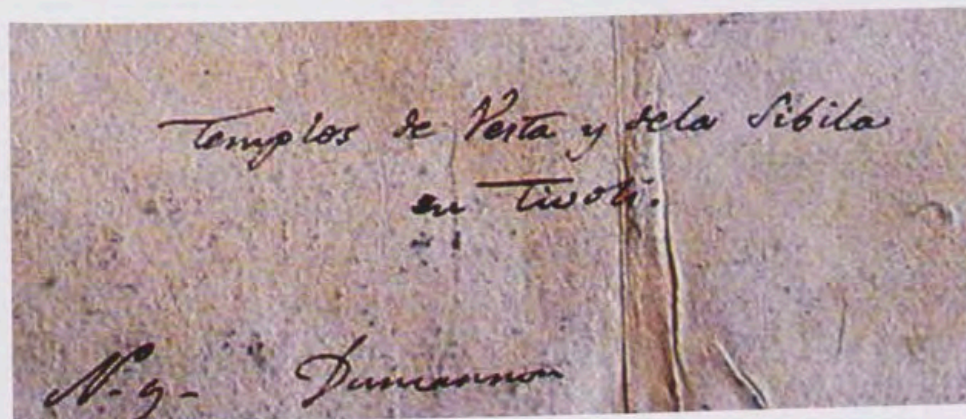 Templos de Vesta y dela Sibila
en Tivoli.
N. 9- Duncannon